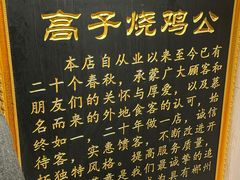 高子烧鸡公
本店自从业以来至今已有
二十个春秋，承蒙广大顾客和
朋友们的关怀与厚爱，以及慕
名而来的外地食客的认可，始
终如一，二十年做一店，诚信
待客，实惠馈客，不断改进开
拓独特风格。提高服务质量，
我们最诚挚的追
为具有郴州